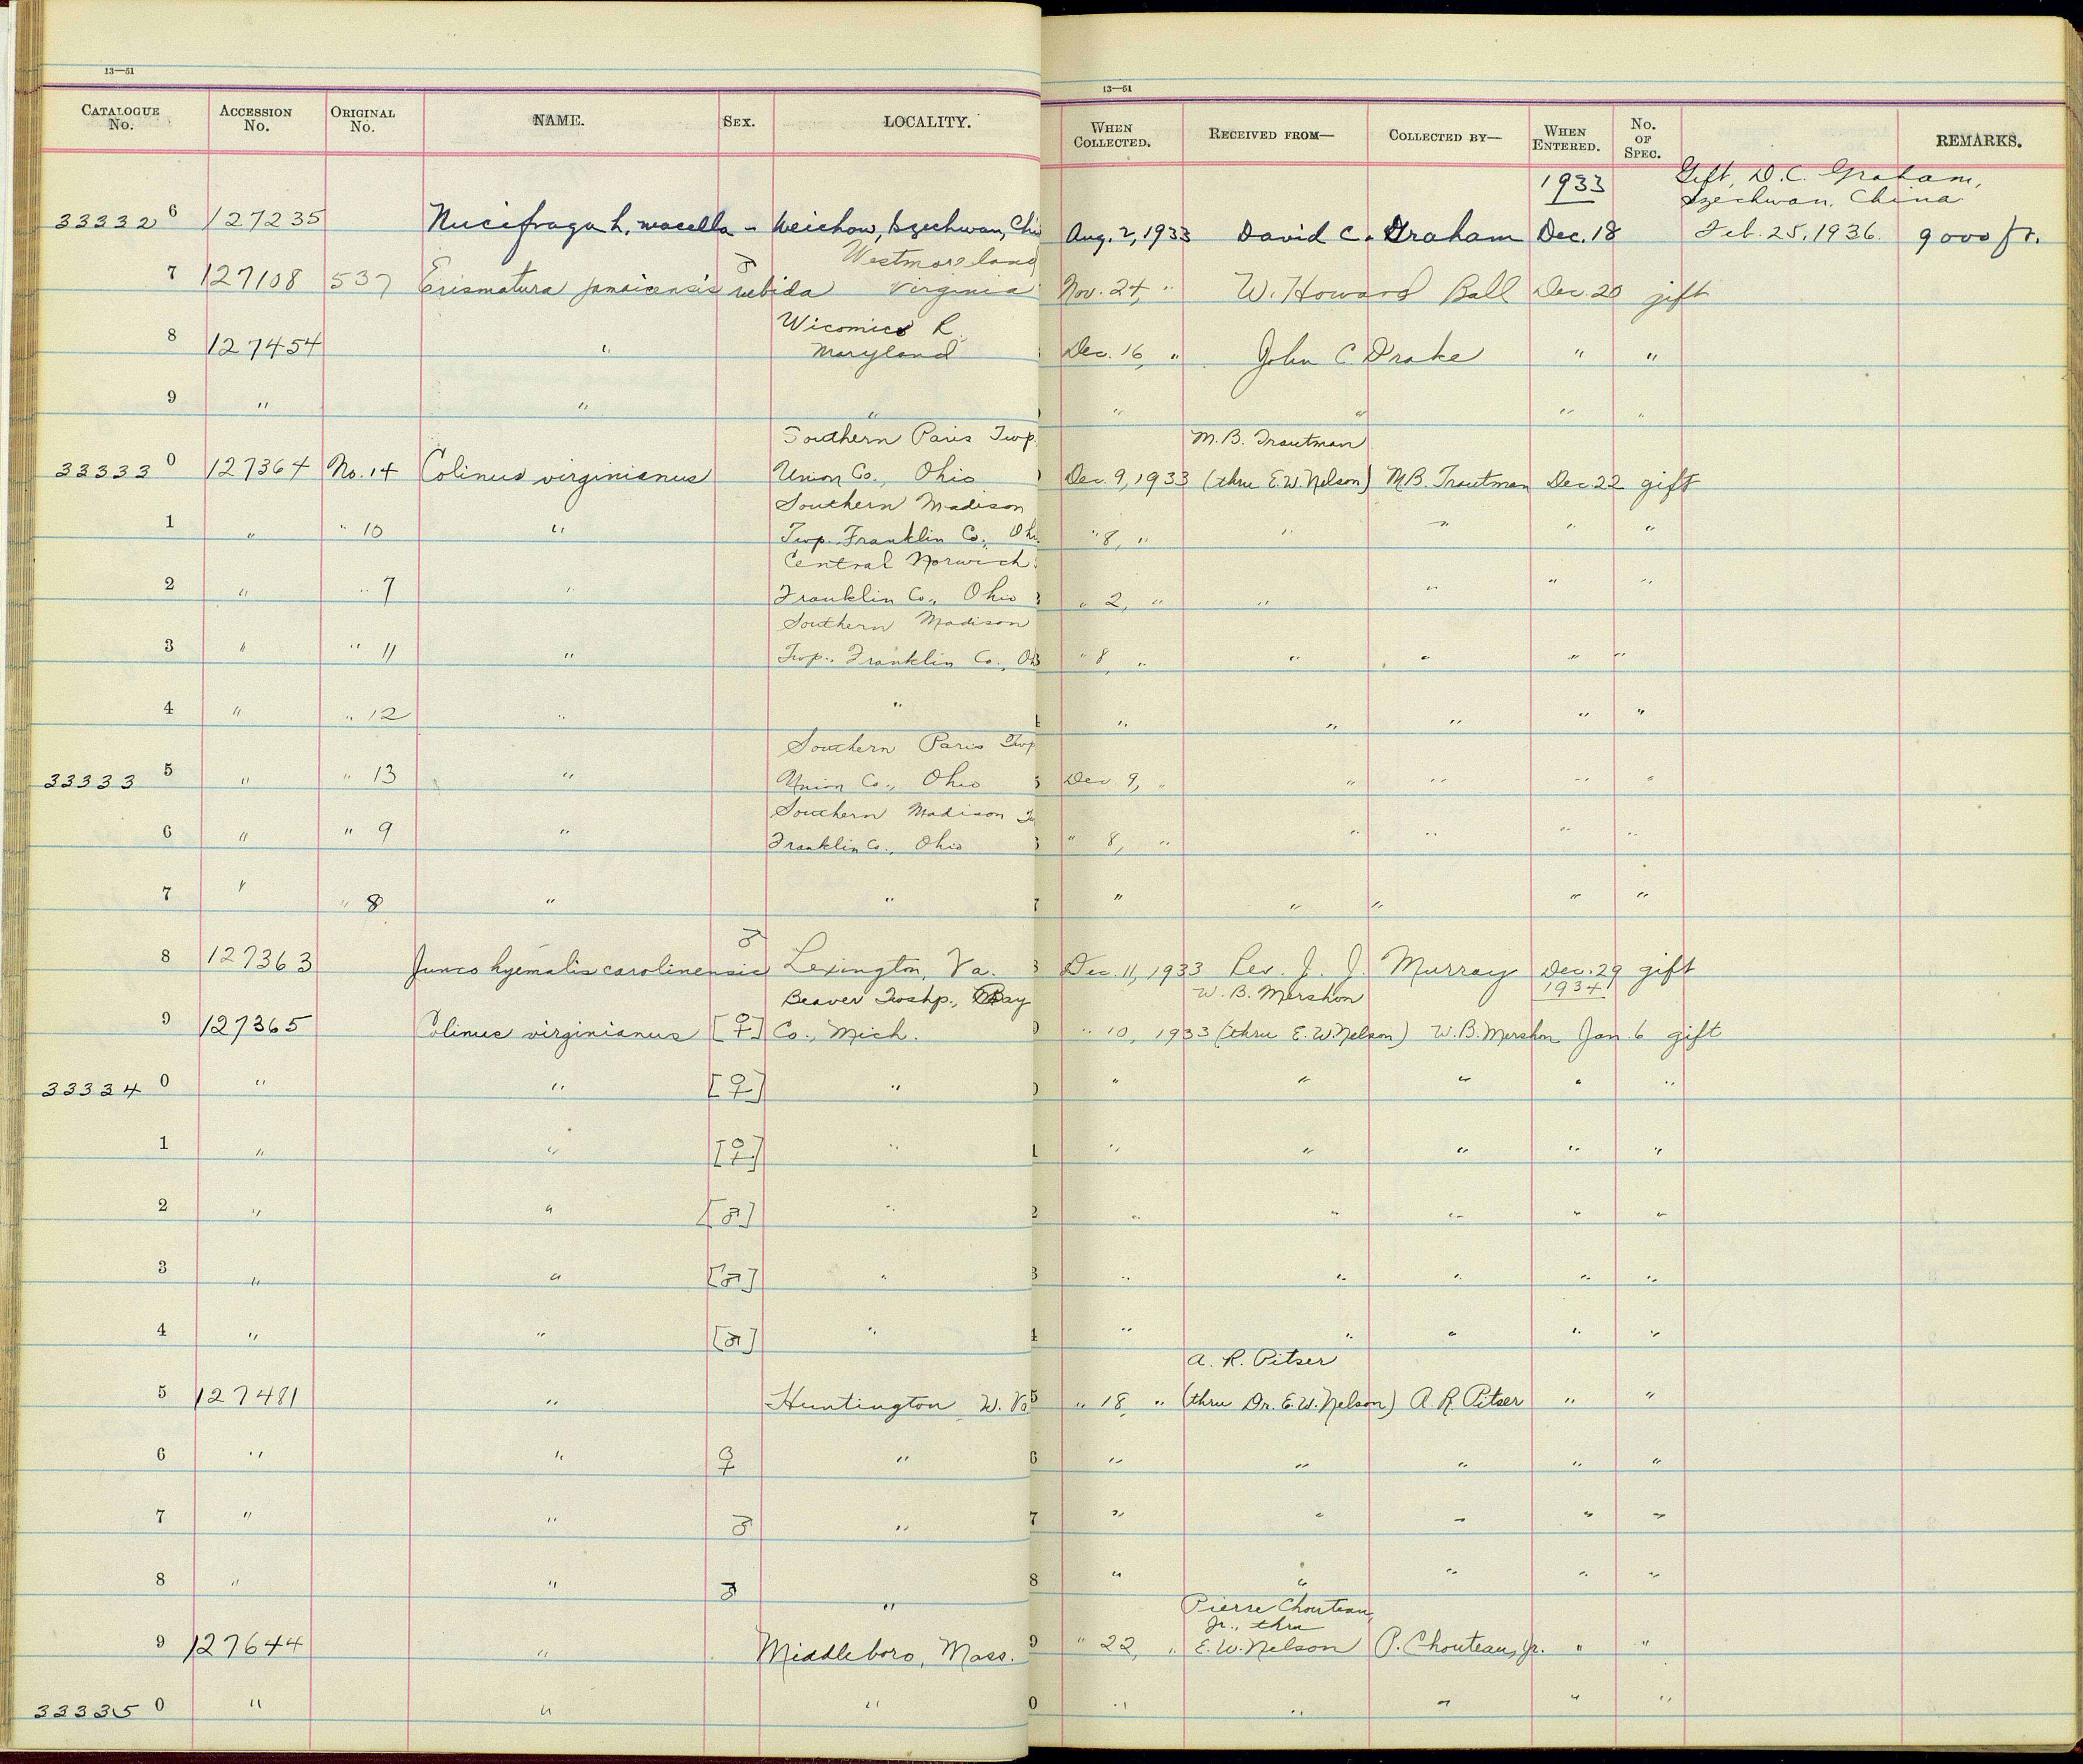 13—51
13—51
CATALOGUE No. ACCESSION No. ORIGINAL No. NAME. SEX. LOCALITY. WHEN COLLECTED. RECEIVED FROM— COLLECTED BY— WHEN ENTERED. No. OF SPEC. REMARKS.
1933 Gift, D. C. Graham,
Szechwan, China
33332 6 127235 Nucifraga h. macella - Weichow, Szechwan, Chi Aug. 2, 1933 David C. Graham Dec. 18 Feb. 25, 1936. 9000 ft.
♂ Westmoreland
7 127108 537 Erismatura jamaicensis rubida Virginia Nov. 24, " W. Howard Ball Dec. 20 gift
Wicomico R.
8 127454 " Maryland Dec. 16, " John C. Drake " "
9 " " " " " " "
Southern Paris Twp. M. B. Trautman
33333 0 127364 No. 14 Colinus virginianus Union Co., Ohio Dec. 9, 1933 (thru E. W. Nelson) M. B. Trautman Dec. 22 gift
Southern Madison
1 " " 10 " Twp. Franklin Co., Ohi " 8, " " " " "
Central Norwich
2 " " 7 " Franklin Co., Ohio " 2, " " " " "
Southern Madison
3 " " 11 " Twp., Franklin Co., O 3 " 8, " " " " "
4 " " 12 " " " " " " "
Southern Paris Twp
33333 5 " " 13 " Union Co., Ohio Dec. 9, " " " " "
Southern Madison T
6 " " 9 " Franklin Co., Ohio " 8, " " " " "
7 " " 8 " " 7 " " " " "
♂
8 127363 Junco hyemalis carolinensis Lexington, Va. Dec. 11, 1933 Rev. J. J. Murray Dec. 29 gift
Beaver Twshp., Bay W. B. Mershon 1934
9 127365 Colinus virginianus [♀] Co., Mich. " 10, 1933 (thru E. W. Nelson) W. B. Mershon Jan 6 gift
33334 0 " " [♀] " " " " " "
1 " " [♀] " 1 " " " " "
2 " " [♂] " 2 " " " " "
3 " " [♂] " 3 " " " " "
4 " " [♂] " 4 " " " " "
A. R. Pitser
5 127481 " Huntington W. Va 5 " 18, " (thru Dr. E. W. Nelson) A. R. Pitser " "
6 " " ♀ " 6 " " " " "
7 " " ♂ " 7 " " " " "
8 " " ♂ " 8 " " " " "
Pierre Chouteau,
Jr., thru
9 127644 " Middleboro, Mass. 9 " 22, " E. W. Nelson P. Chouteau, Jr. " "
33335 0 " " " 0 " " " " "